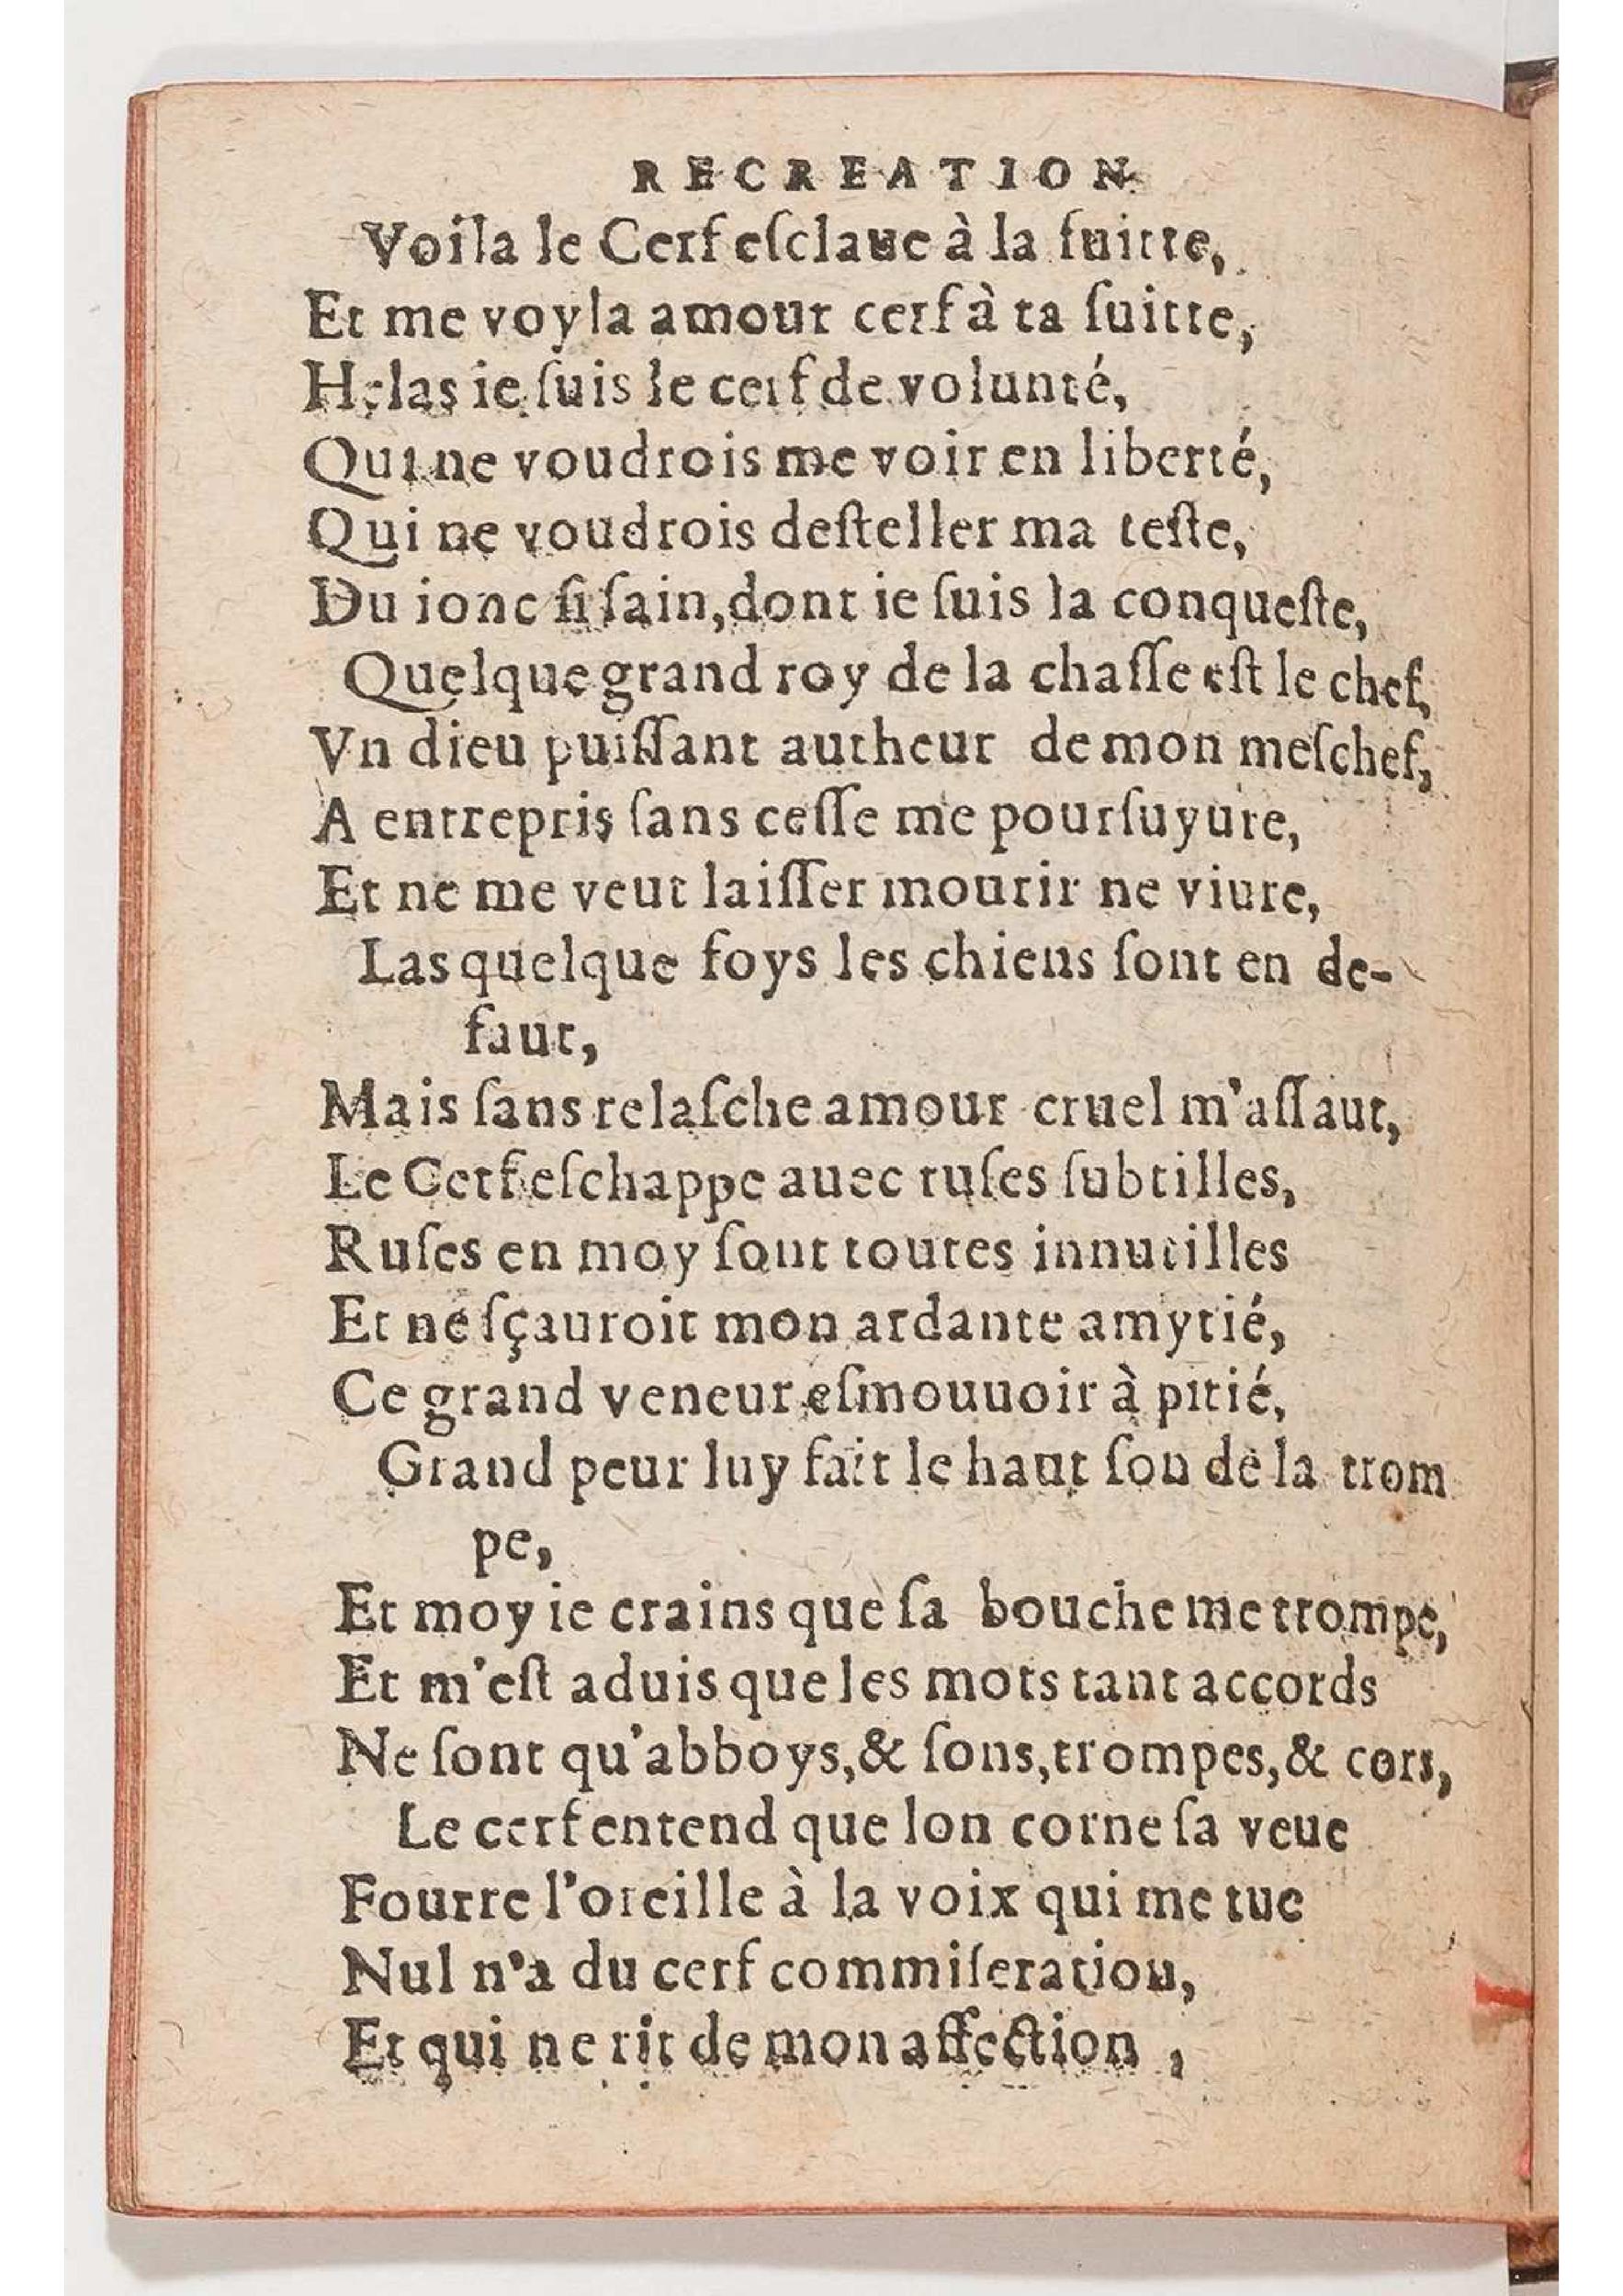 RECREATION
Voila le Cerf eſclaue à la ſuitte,
Et me voyla amour cerf à ta ſuitte,
Helas ie ſuis le cerf de volunté,
Qui ne voudrois me voir en liberté,
Qui ne voudrois deſteller ma teſte,
Du ionc ſi ſain, dont ie ſuis la conqueſte,
Quelque grand roy de la chaſſe eſt le chef,
Vn dieu puiſſant autheur de mon meſchef,
A entrepris ſans ceſſe me pourſuyure,
Et ne me veut laiſſer mourir ne viure,
Las quelque foys les chiens ſont en de-
faut,
Mais ſans relaſche amour cruel m'aſſaut,
Le Cerf eſchappe auec ruſes ſubtilles,
Ruſes en moy ſont toutes innutilles
Et ne ſçauroit mon ardante amytié,
Ce grand veneur eſmouuoir à pitié,
Grand peur luy fait le haut ſon de la trom
pe,
Et moy ie crains que ſa bouche me trompe,
Et m'eſt aduis que les mots tant accords
Ne ſont qu'abboys, & ſons, trompes, & cors,
Le cerf entend que lon corne ſa veue
Fourre l'oreille à la voix qui me tue
Nul n'a du cerf commiſeration,
Et qui ne rit de mon affection,